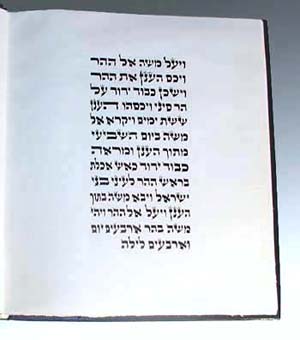 ויעל משה אל ההר
ויכס הענן את ההר
וישכן כבוד ידוד על
הר סיני ויכסהו הענן
ששת ימים ויקרא אל
משה ביום השביעי
מתוך הענן ומראה
כבוד ידוד כאש אכלת
בראש ההר לעיני בני
ישראל ויבא משה בתוך
הענן ויעל אל ההר ויהי
משה בהר ארבעים יום
וארבעים לילה